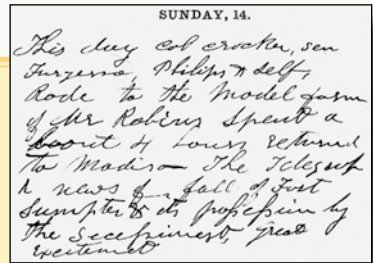 SUNDAY, 14.
This day col crocker, sen
Furgerson, Philips & self,
Rode to the Model farm
of Mr Robins Spent a
bout 4 hours returned
to Madison The Telegraph
news of fall of Fort
Sumpter & its possession by
the Secessionest, great
Excitement